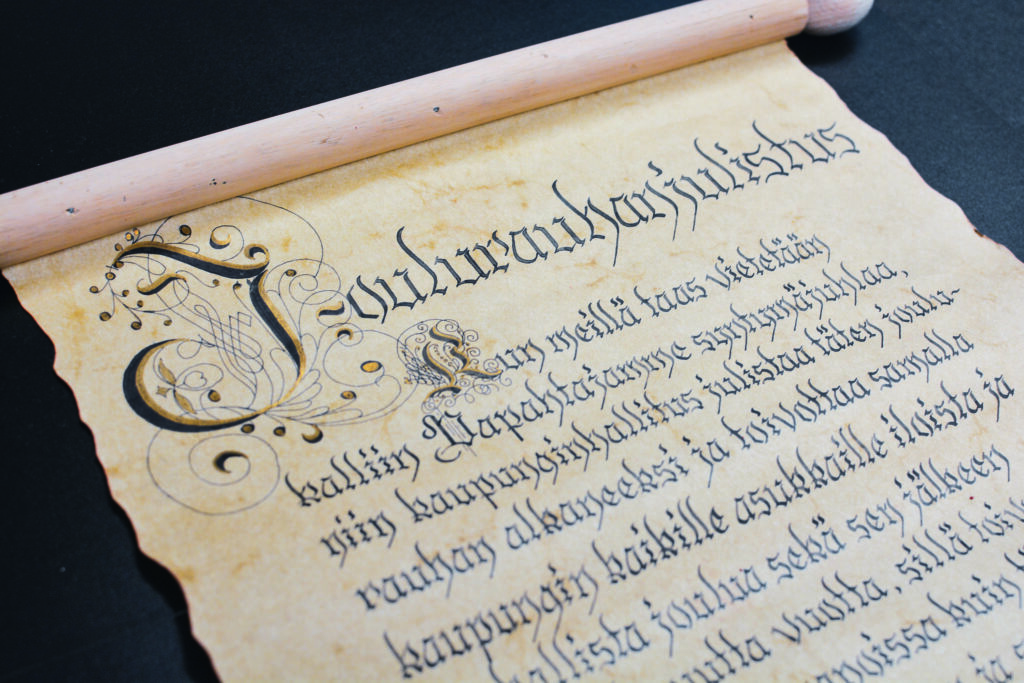 Joulurauhanjulistus
Kun meillä taas vietetään
kalliin Vapahtajamme syntymäjuhlaa,
niin kaupunginhallitus julistaa täten joulu-
rauhan alkaneeksi ja toivottaa samalla
kaupungin kaikille asukkaille iloista ja
joulua sekä sen jälkeen
vuotta, sillä
kuin
ja